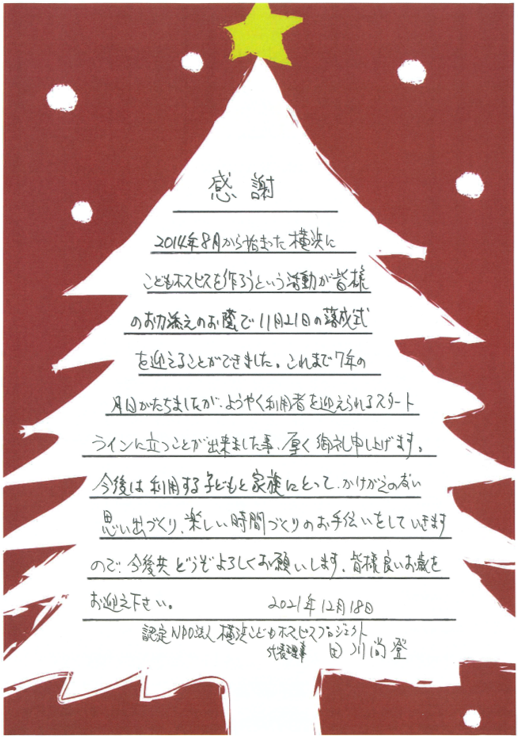 感謝
2014年8月から始まった横浜に
こどもホスピスを作ろうという活動が皆様
のお力添えのお蔭で11月21日の落成式
を迎えることができました。これまで7年の
月日がたちましたが、ようやく利用者を迎えられるスタート
ラインに立つことが出来ました事、厚く御礼申し上げます。
今後は利用する子どもと家族にとって、かけがえの有い
思い出づくり、楽しい時間づくりのお手伝いをしていきます
ので、今後共どうぞよろしくお願いします。皆様良いお歳を
お迎え下さい。 2021年12月18日
認定NPO法人 横浜こどもホスピスプロジェクト
代表理事 田川尚登